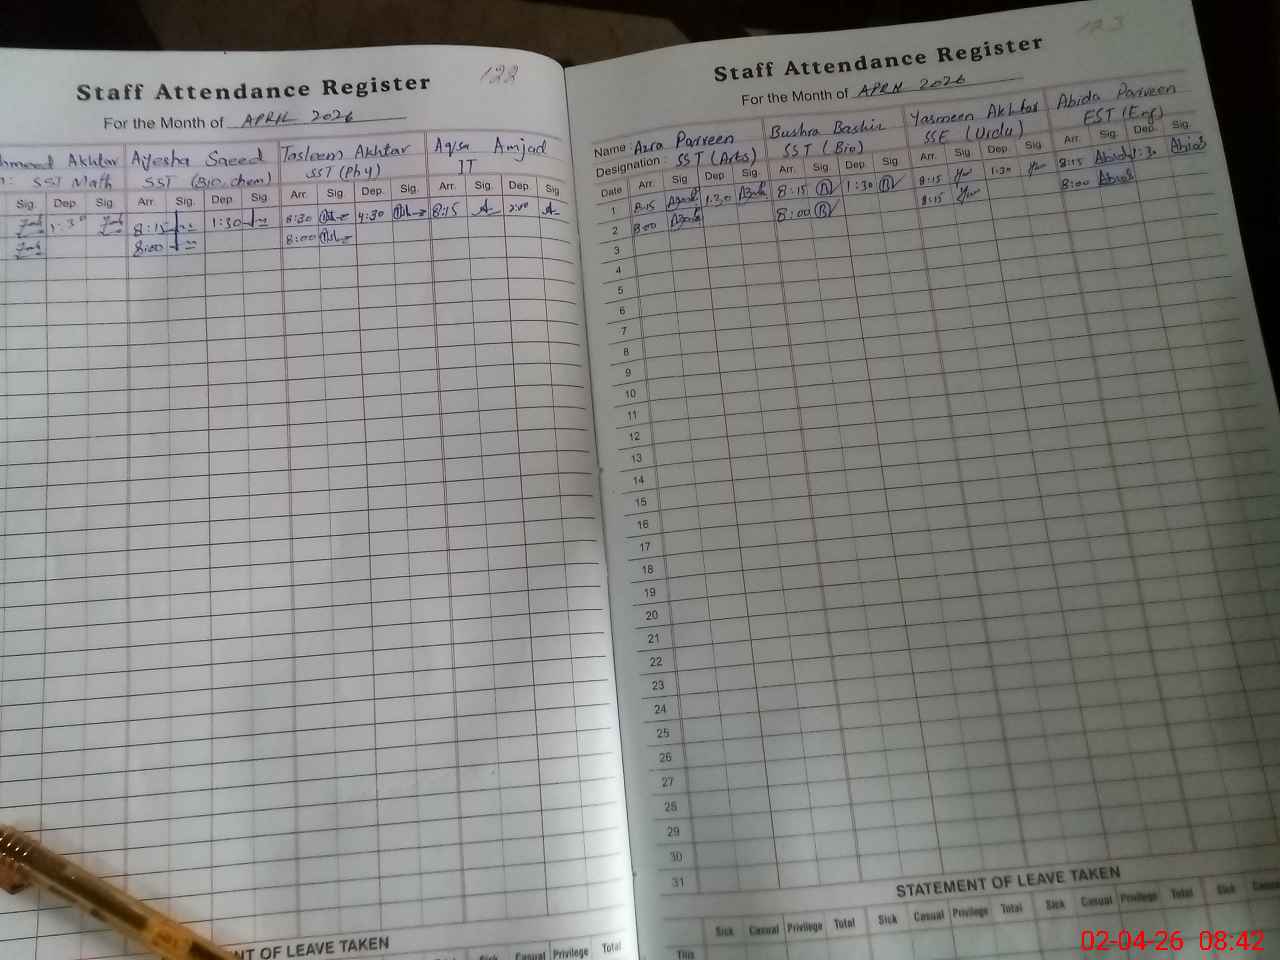 122
Staff Attendance Register
For the Month of APRIL 2026
hmeed Akhtar Ayesha Saeed Tasleem Akhtar Aqsa Amjad
: SST Math SST (Bio, chem) SST (Phy) IT
Sig. Dep. Sig Arr. Sig. Dep. Sig Arr. Sig Dep. Sig. Arr. Sig. Dep. Sig
1:30 8:15 1:30 8:30 4:30 8:15 2:00
8:00 8:00
NT OF LEAVE TAKEN
Sick Casual Privilege Total
123
Staff Attendance Register
For the Month of APRIL 2026
Name : Azra Parveen Bushra Bashir Yasmeen Akhtar Abida Parveen
Designation : SST (Arts) SST (Bio) SSE (Urdu) EST (Eng)
Date Arr. Sig Dep Sig Arr. Sig. Dep. Sig. Arr. Sig Dep. Sig. Arr. Sig. Dep. Sig.
1 8:15 1:30 8:15 1:30 8:15 1:30 8:15 Abida 1:30 Abida
2 8:00 8:00 8:15 8:00 Abida
3
4
5
6
7
8
9
10
11
12
13
14
15
16
17
18
19
20
21
22
23
24
25
26
27
28
29
30
31
STATEMENT OF LEAVE TAKEN
Sick Casual Privilege Total Sick Casual Privilege Total Sick Casual Privilege Total Sick
This
02-04-26 08:42